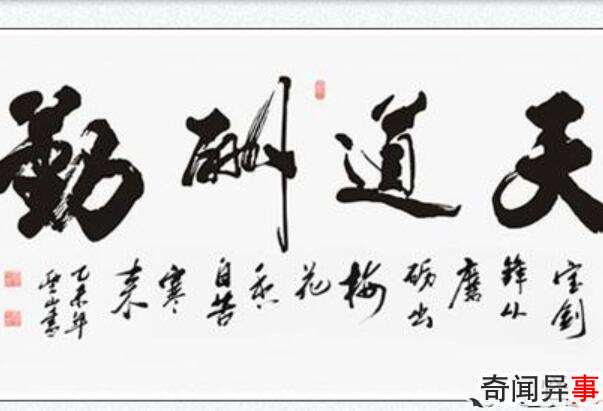 天道酬勤
宝剑
鋒从
磨
砺出
梅
花
香
自苦
寒
来
乙未年
山書
奇闻异事